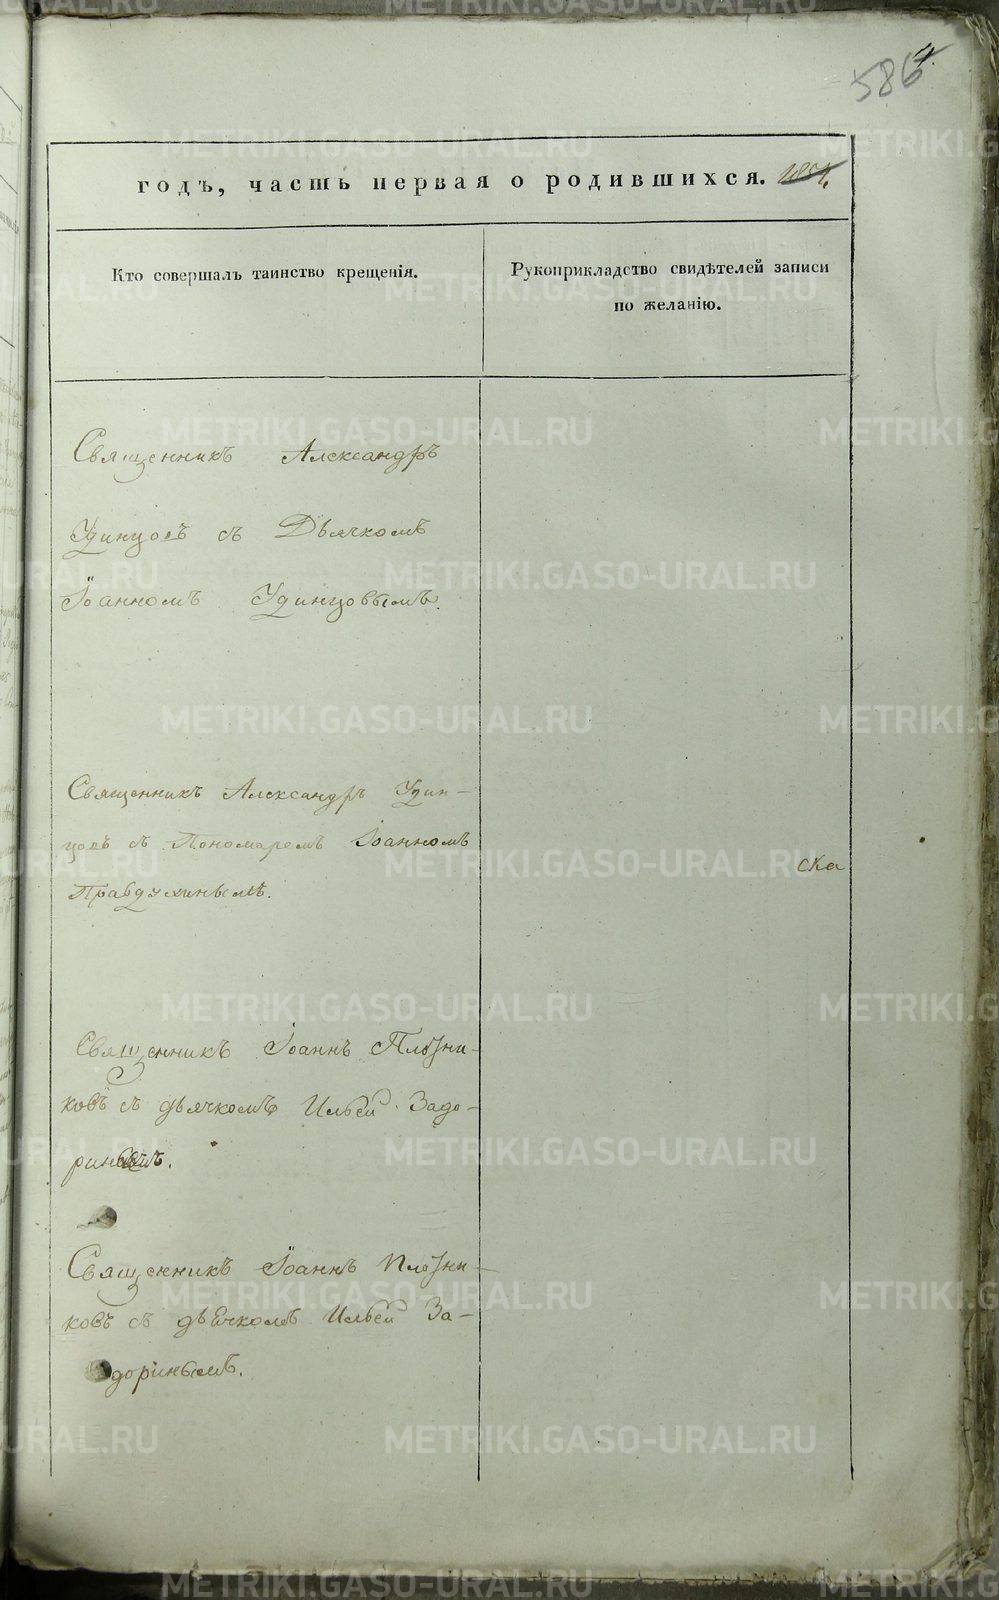 586
4.
годъ, часть первая о родившихся. 1851.
Кто совершалъ таинство крещенія.
Рукоприкладство свидѣтелей записи
по желанію.
Священникъ Александръ
Удинцовъ съ Дьячкомъ
Іоанномъ Удинцовымъ.
Священникъ Александръ Удин-
цовъ съ Пономаремъ Іоанномъ
Правдухинымъ.
ска
Священникъ Іоаннъ Плотни-
ковъ съ дьячкомъ Ильей Задо-
ринымъ.
Священникъ Іоаннъ Плотни-
ковъ съ дьячкомъ Ильей За-
доринымъ.
METRIKI.GASO-URAL.RU